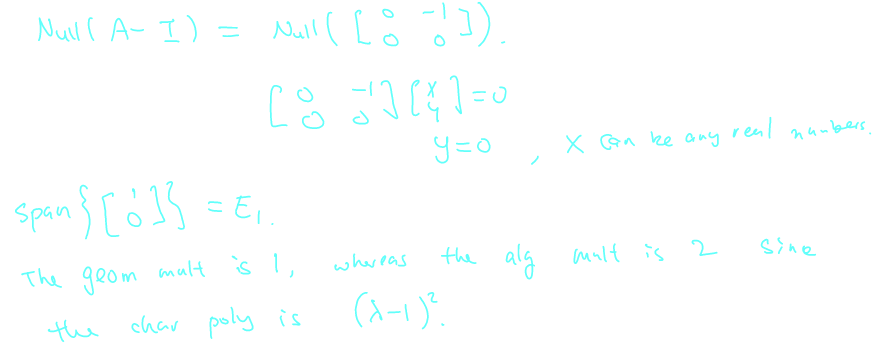 Null( A - I ) = Null( [ 0 -1 0 0 ] ).
[ 0 -1 0 0 ] [ x y ] = 0
y = 0 , x can be any real numbers.
span { [ 1 0 ] } = E₁.
The geom mult is 1, whereas the alg mult is 2 sine
the char poly is (λ-1)².